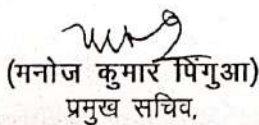 (मनोज कुमार पिंगुआ)
प्रमुख सचिव,